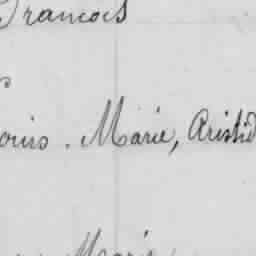 François
ouis. Marie, Aristid
Marie